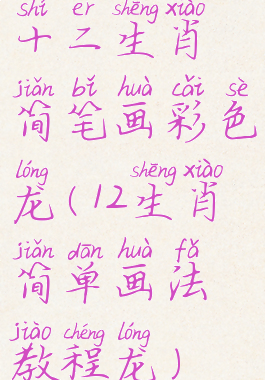 shí èr shēng xiào
十二生肖
jiǎn bǐ huà cǎi sè
简笔画彩色
lóng shēng xiào
龙(12生肖
jiǎn dān huà fǎ
简单画法
jiào chéng lóng
教程龙)